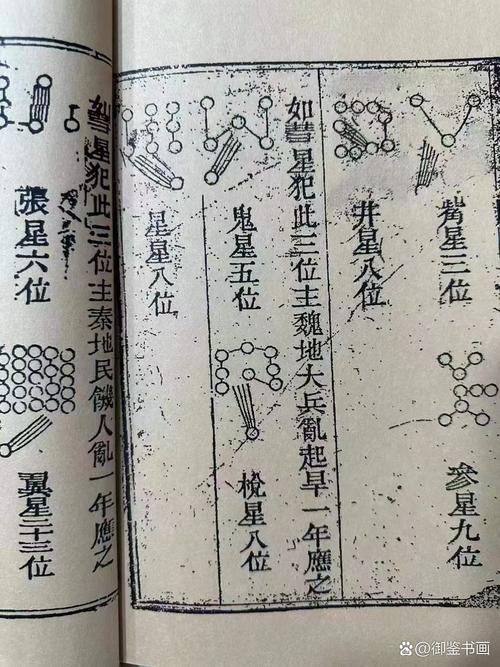 觜星三位
參星九位
井星八位
如彗星犯此三位主魏地大兵亂起旱一年應之
鬼星五位
星八位
星星八位
如彗星犯此三位主秦地民饑人亂一年應之
張星六位
翼星二十三位
@御鉴书画